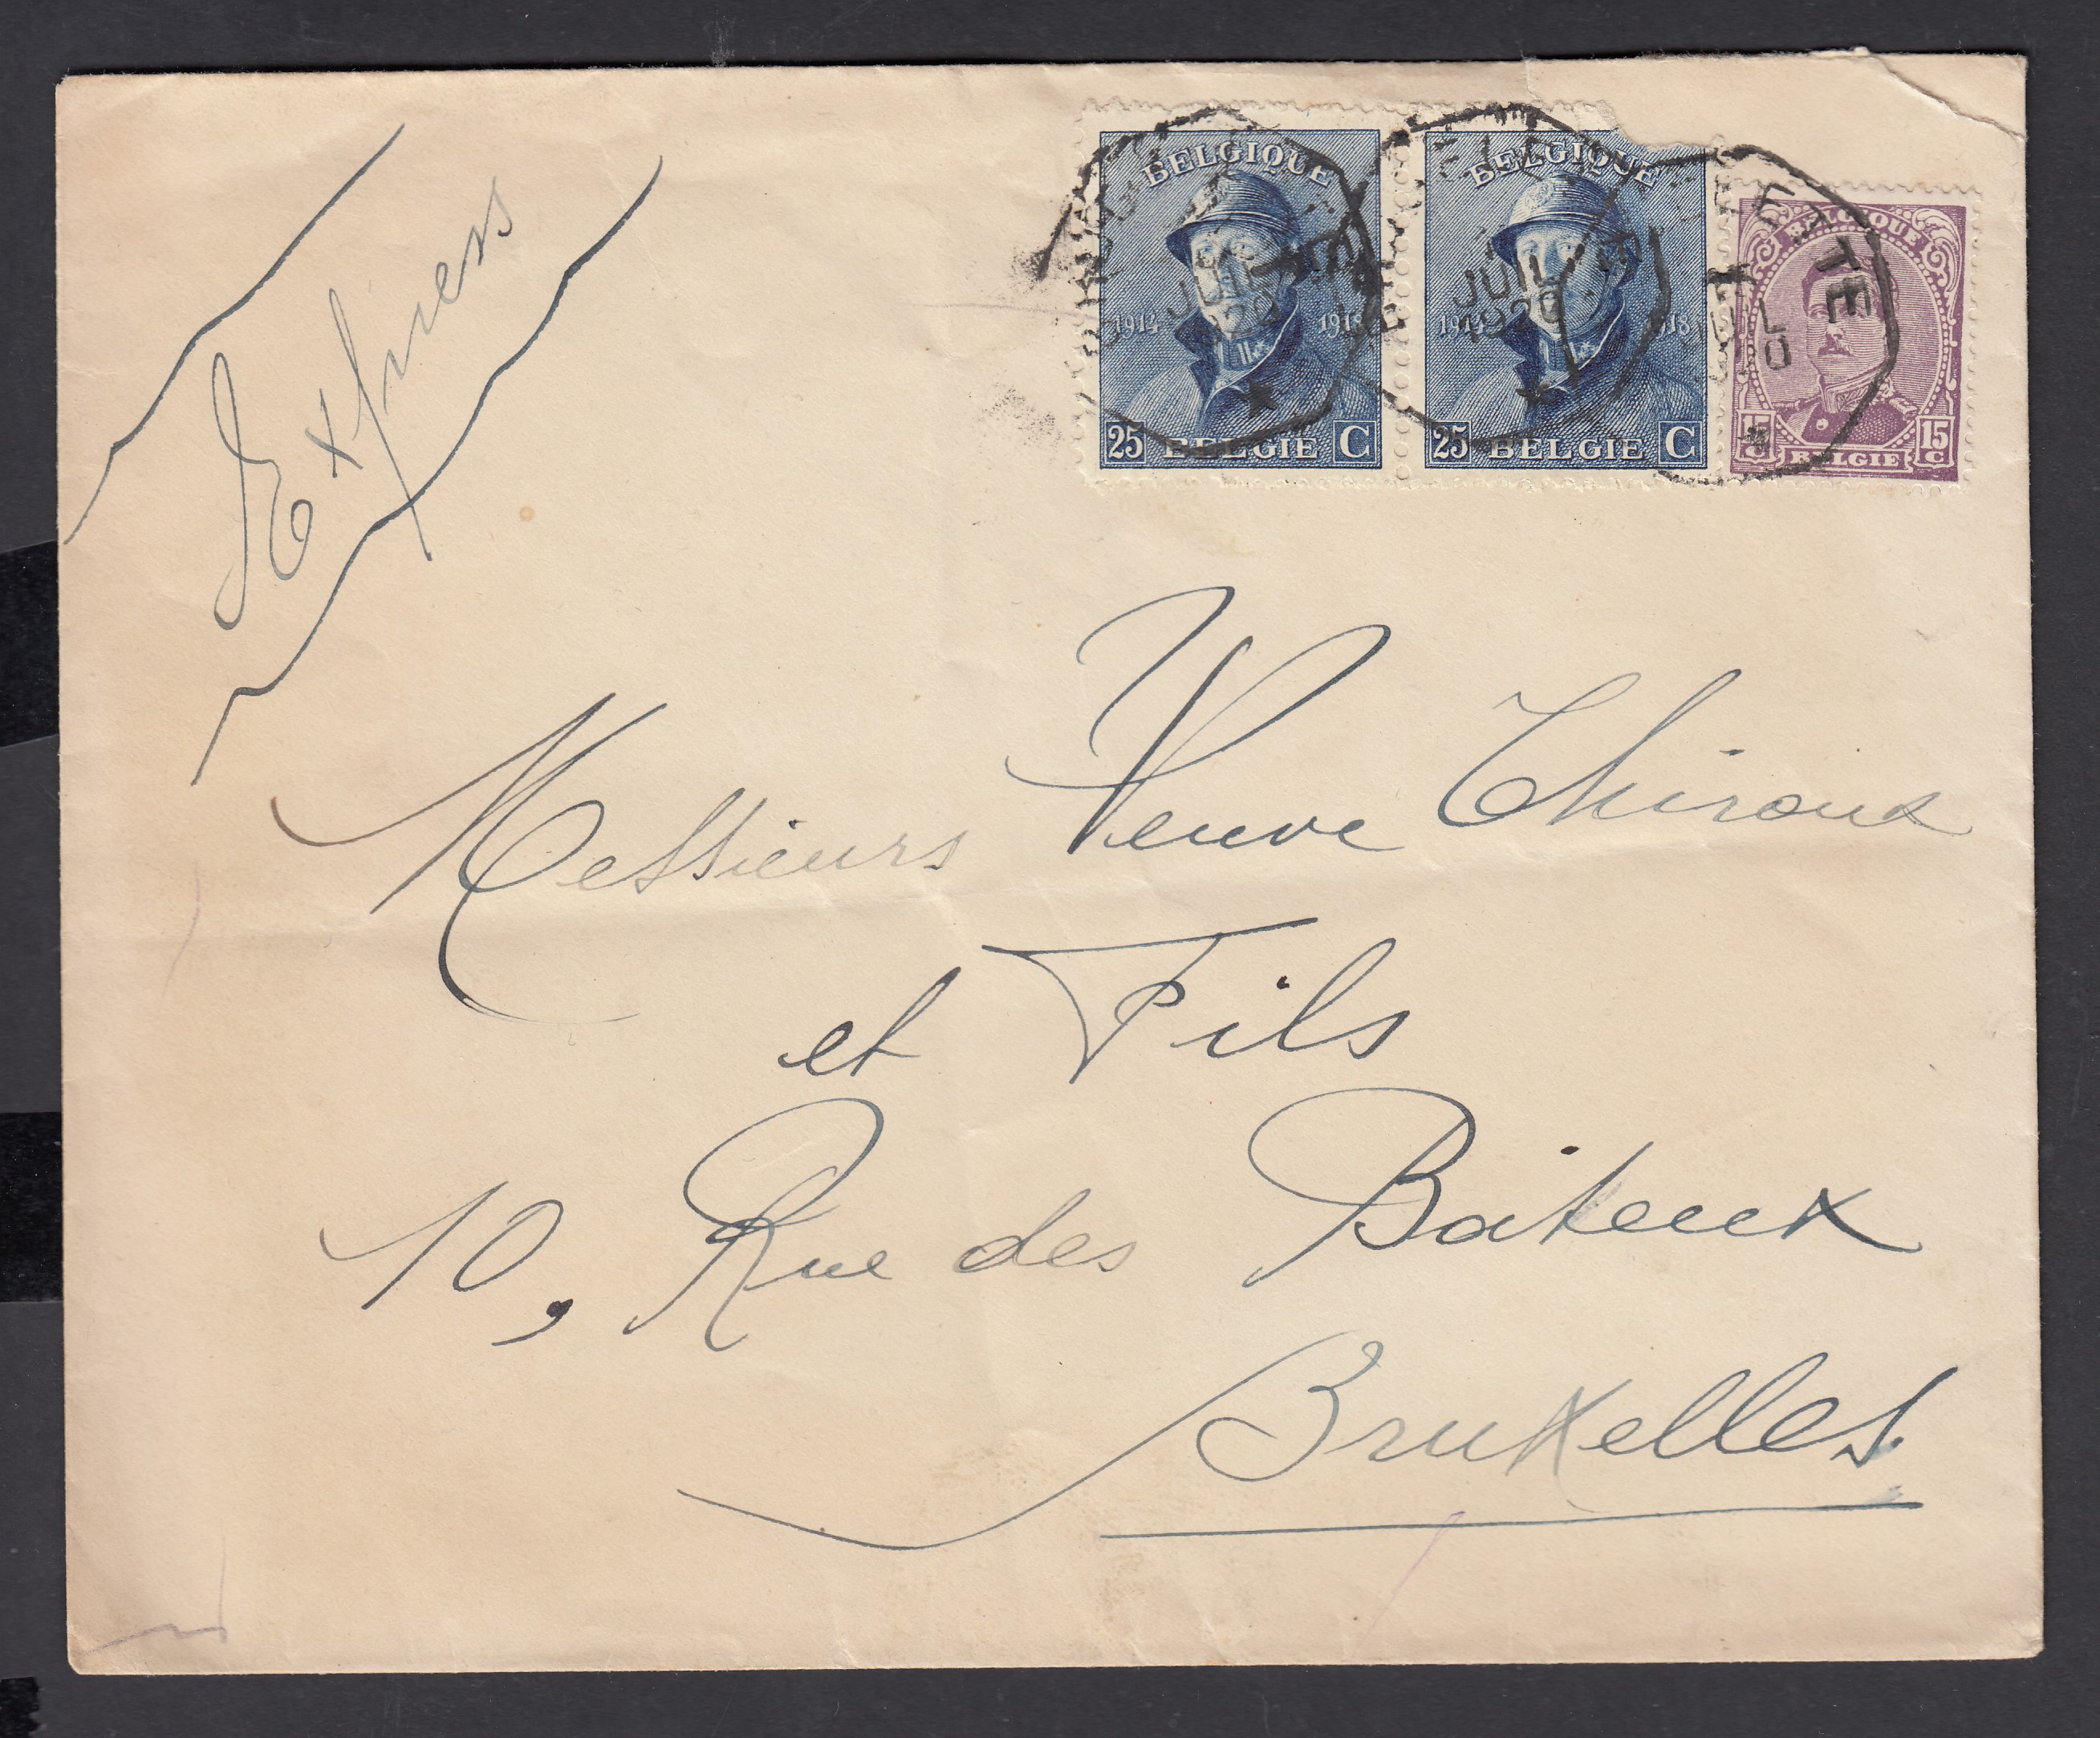 Express
BELGIQUE
1914 1918
25 BELGIE C
BELGIQUE
1914 1918
25 BELGIE C
BELGIQUE
15 C BELGIE 15 C
JUIL
JUIL
1920
Messieurs Veuve Thiroux
et Fils
10, Rue des Bateux
Bruxelles.